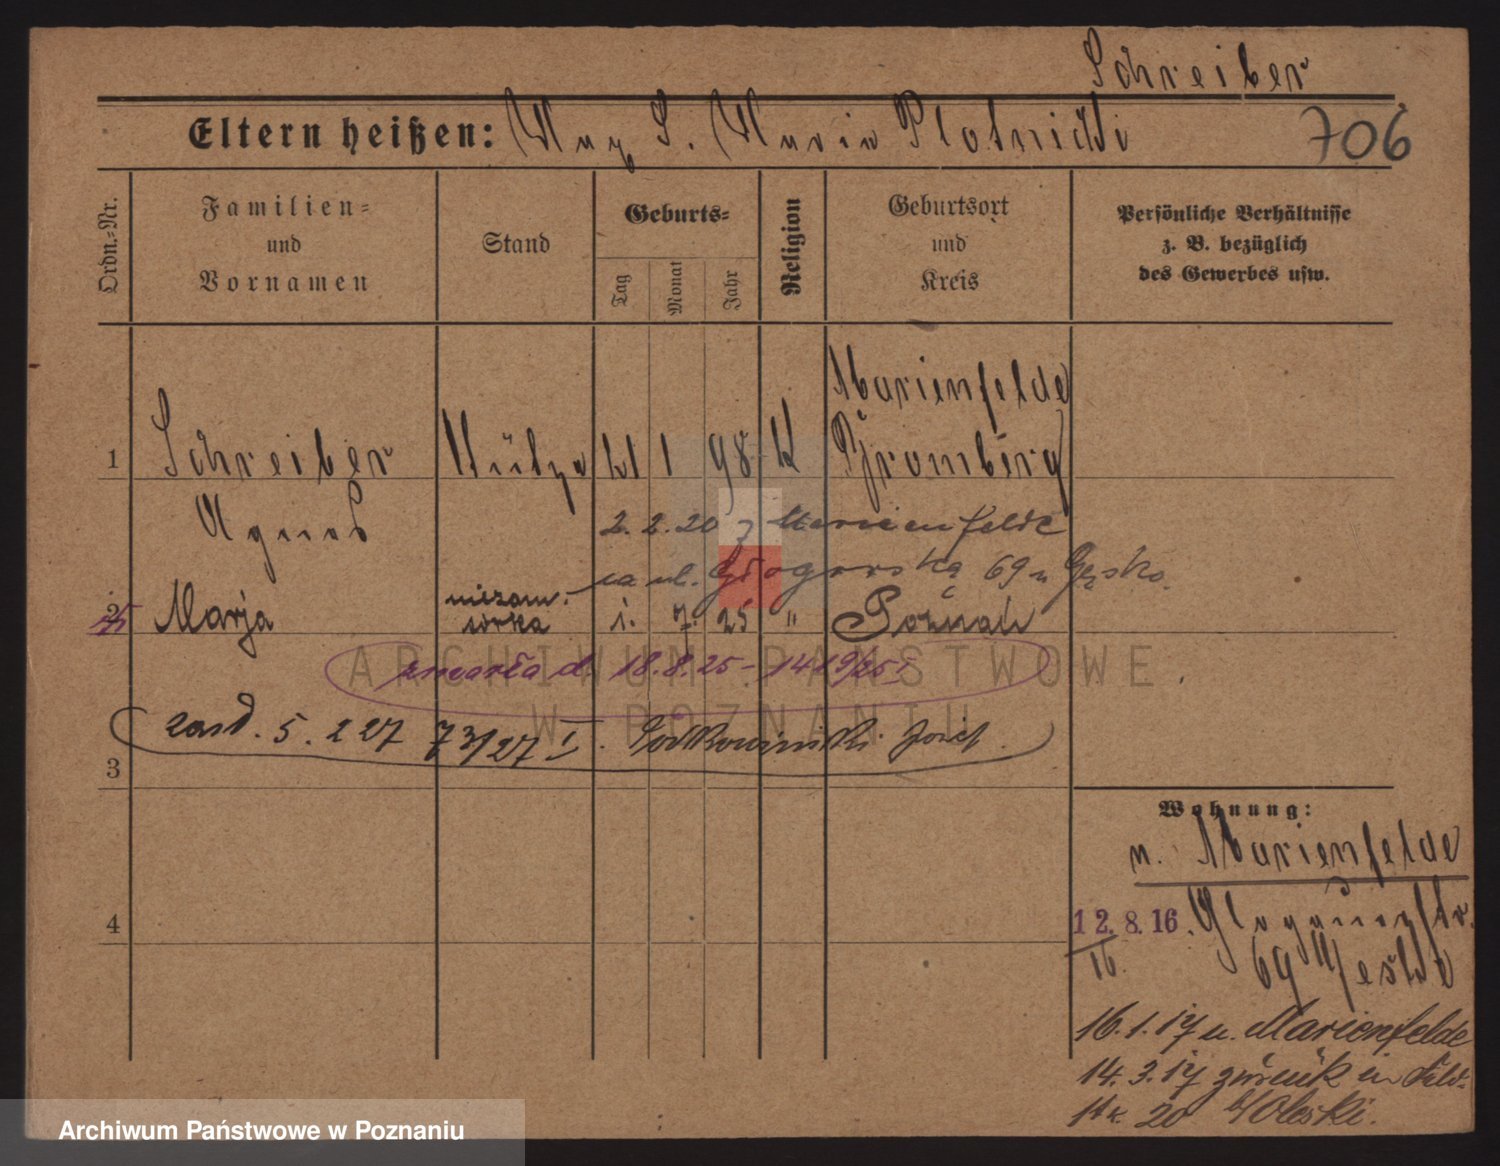 Schreiber
Eltern heißen: Aug. S. Maria Plotnicki
706
Ordn.-Nr.
Familien-
und
Vornamen
Stand
Geburts-
Tag
Monat
Jahr
Religion
Geburtsort
und
Kreis
Persönliche Verhältnisse
z. B. bezüglich
des Gewerbes usw.
Marienfelde
1 Schreiber Stütze 1 98 k Bromberg
Agnes
2.2.20 z Marienfelde
na ul. Głogowską 69 u Gęsko.
2 Marja niezam. 1. 7. 25 " Poznań
zmarła d. 18.8.25 - 1419/25 I
zasd. 5. 2 27 73/27 I. Józef
3
Wohnung:
n. Marienfelde
4
12.8.16. Glogauerstr.
16. 69
16.1.17 n. Marienfelde
14.3.17 zurück in
20
ARCHIWUM PAŃSTWOWE
W POZNANIU
Archiwum Państwowe w Poznaniu